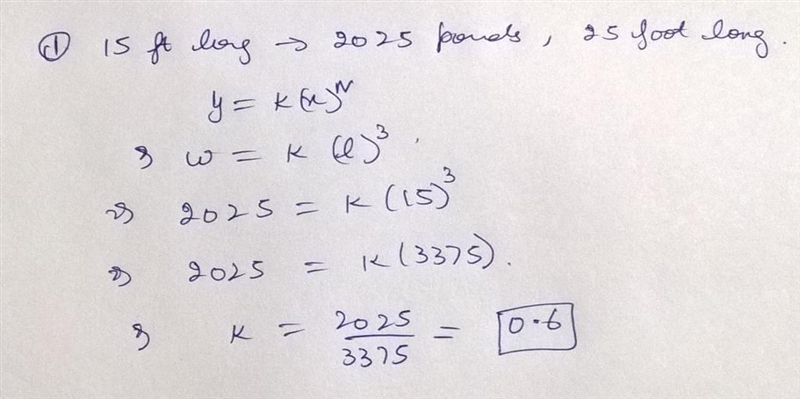 ① 15 ft long → 2025 pounds, 25 foot long.
y = k(x)^n
⇒ w = k (l)^3
⇒ 2025 = k (15)^3
⇒ 2025 = k (3375).
⇒ k = 2025/3375 = 0.6